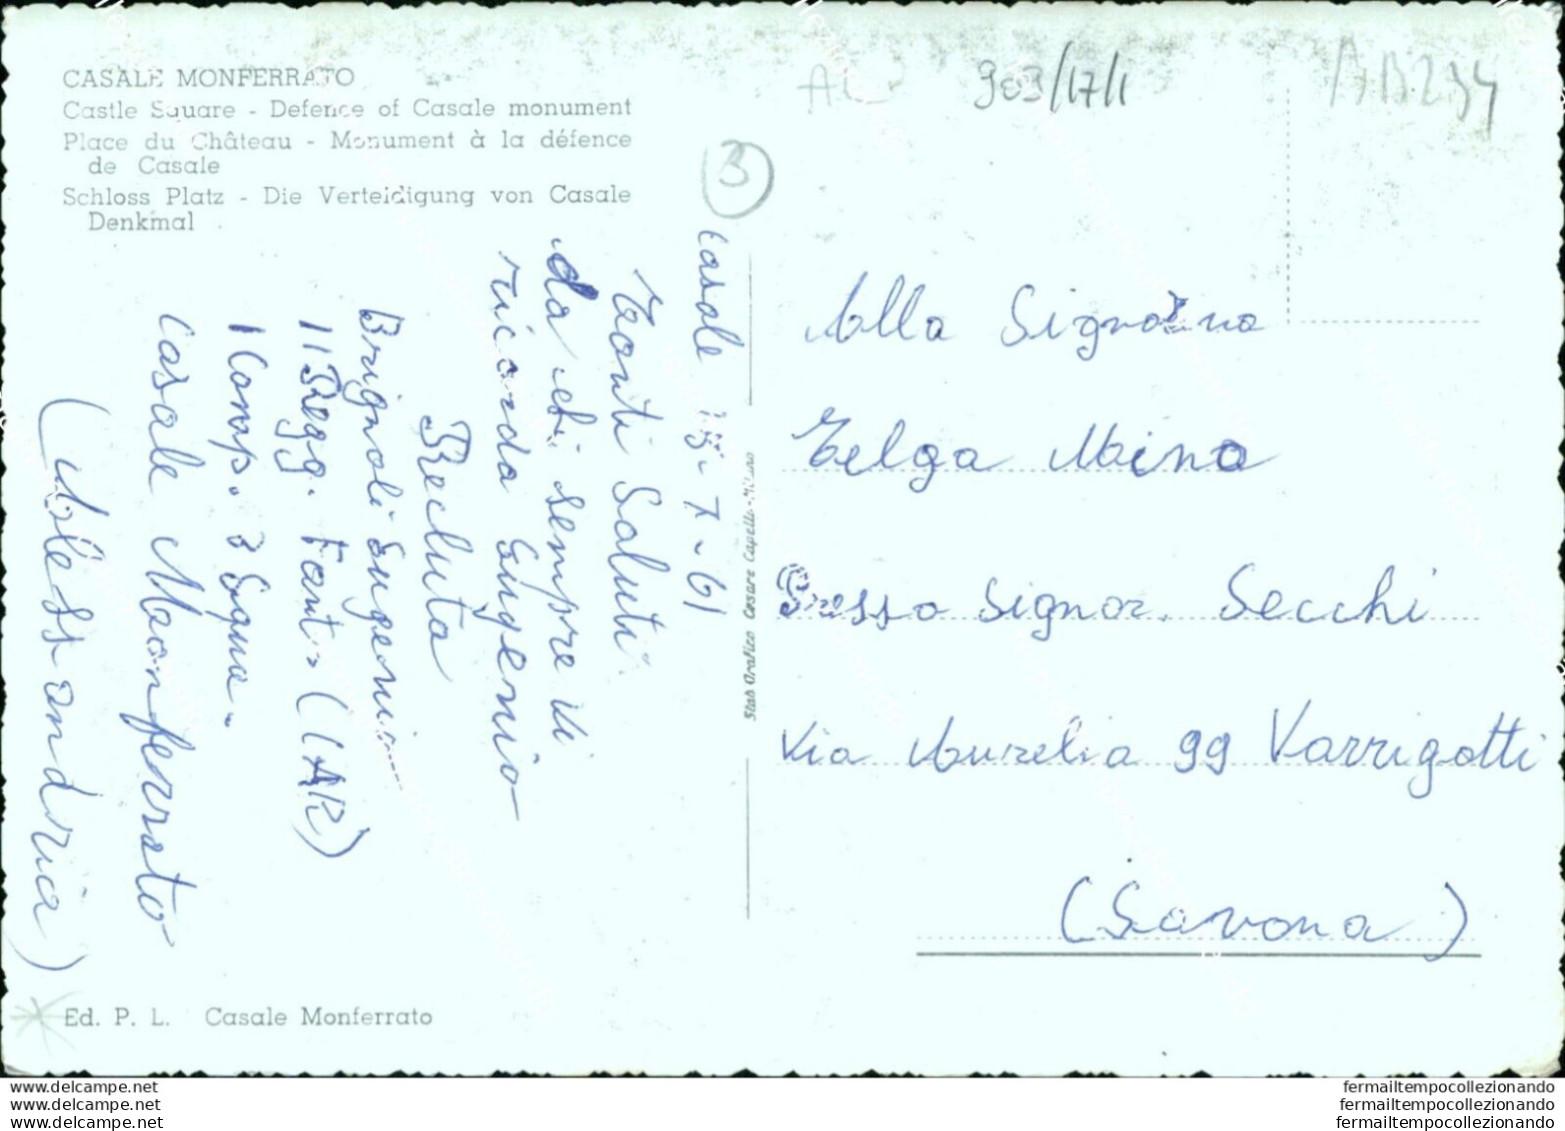 CASALE MONFERRATO
Castle Square - Defence of Casale monument
Place du Château - Monument à la défence
de Casale
Schloss Platz - Die Verteidigung von Casale
Denkmal
AL
303/17/1
AB234
3
Casale 18-7-61
Tanti Saluti
da chi sempre vi
ricorda Eugenio
Recluta
Brignoli Eugenio
11 Regg. Fant. (CAR)
1 Comp. 3 Squa.
Casale Monferrato
(Alessandria)
Stab Grafico Cesare Capello-Milano
Alla Signorina
Telga Mina
Presso Signor. Secchi
Via Aurelia 99 Varrigotti
(Savona)
Ed. P. L. Casale Monferrato
www.delcampe.net
www.delcampe.net
www.delcampe.net
fermailtempocollezionando
fermailtempocollezionando
fermailtempocollezionando